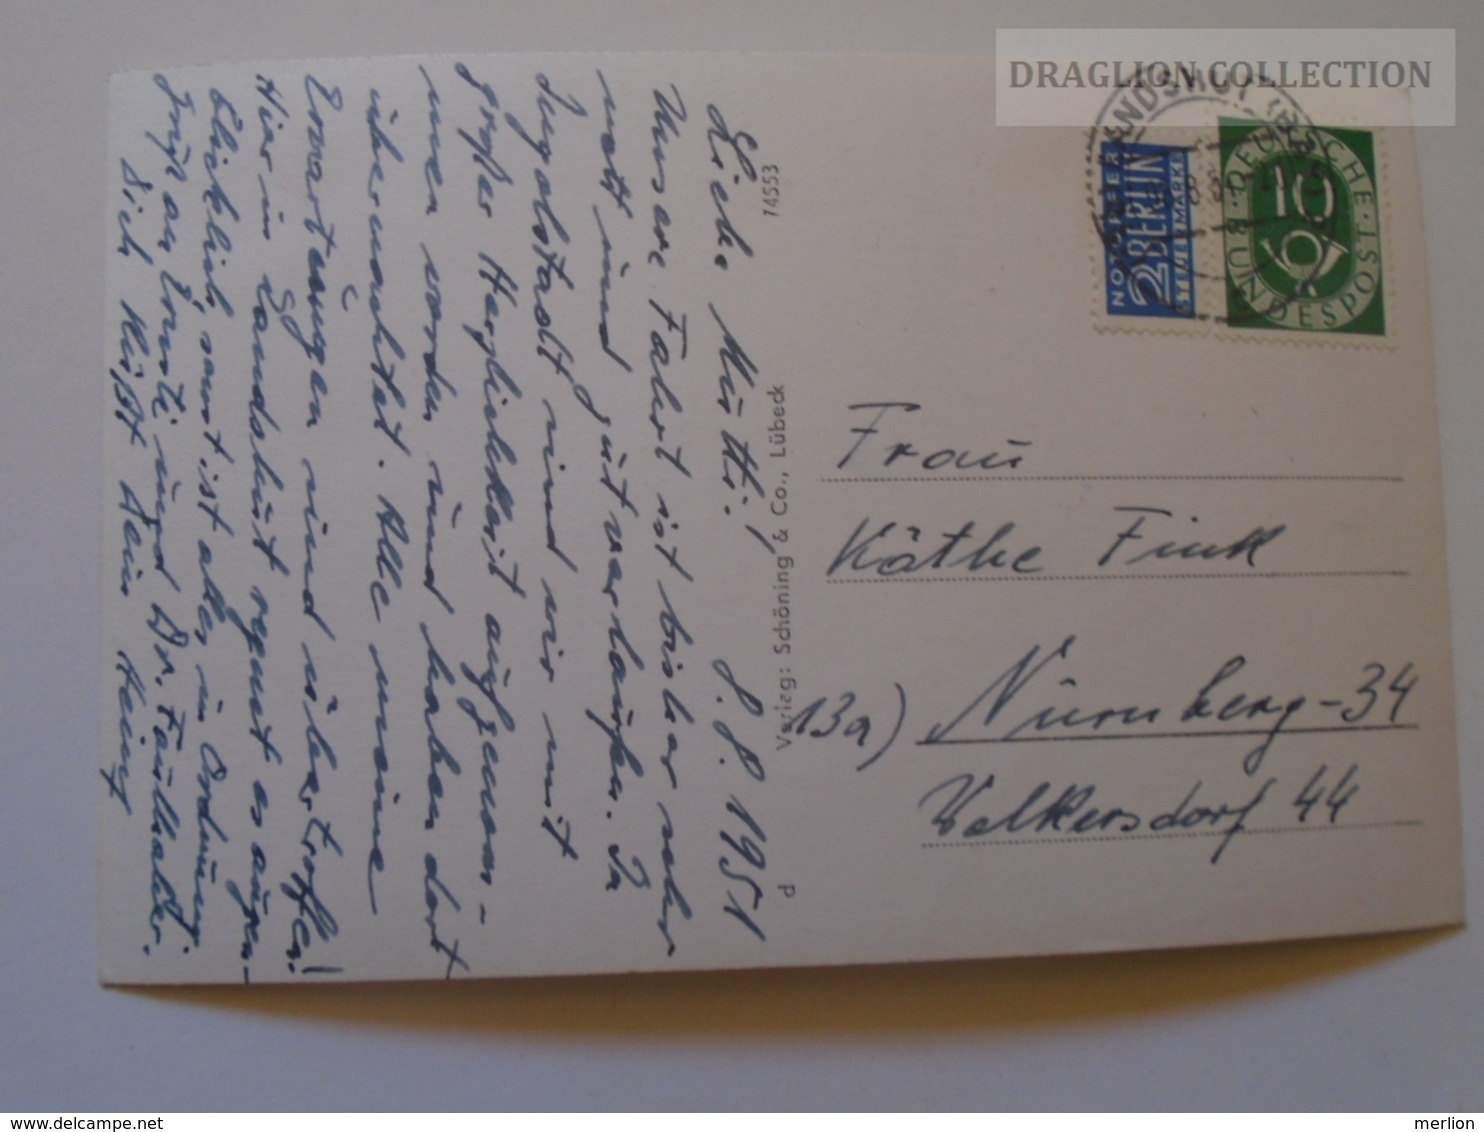 DRAGLION COLLECTION
LANDSHUT
NOTOPFER
2 BERLIN
STEUERMARKE
DEUTSCHE BUNDESPOST
10
74553
Verlag: Schöning & Co., Lübeck
d
8.8.1951
Liebe Mutti!
Unsere Fahrt ist bisher sehr
nett und gut verlaufen. In
Ingolstadt sind wir mit
großer Herzlichkeit aufgenom-
men worden und haben dort
übernachtet. Alle meine
Erwartungen sind übertroffen!
Hier in Landshut regnet es augen-
blicklich, sonst ist alles in Ordnung.
Gruß an Ernsti und Dr. Faulhaber.
Dich küßt Dein Heinz
Frau
Käthe Fink
13a) Nürnberg-34
Volkersdorf 44
merlion